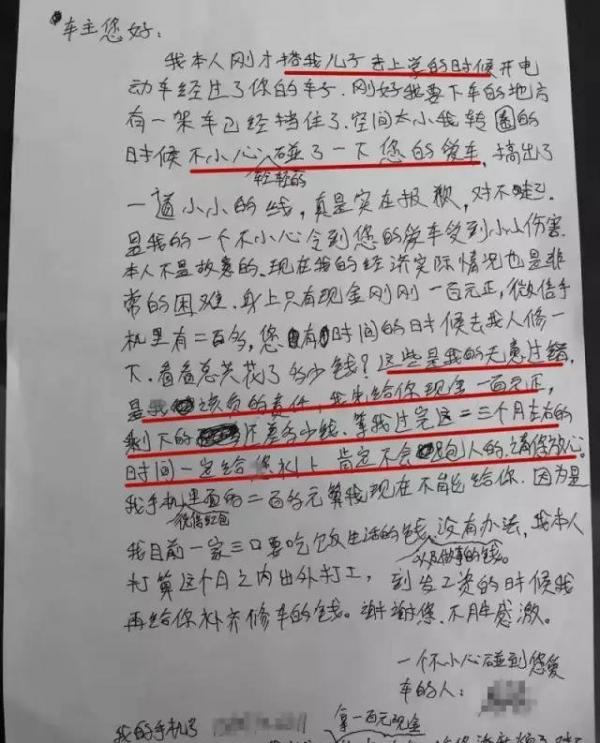 车主您好：
我本人刚才搭我儿子去上学的时候开电
动车经过了你的车子.刚好我要下车的地方
有一架车已经挡住了.空间太小我转圈的
时候不小心碰了一下您的爱车,搞出了
轻轻的
一道小小的线,真是实在报歉,对不起
是我的一个不小心令到您的爱车受到小小伤害
本人不是故意的.现在我的经济实际情况也是非
常的困难.身上只有现金刚刚一百元正,微信手
机里有二百多,您有时间的日时候去找人修一
下.看看总共花了多少钱?这些是我的无意过错,
是我该负的责任,我先给你现金一百元正,
剩下的还差多少钱.等我过完这二三个月左右的
时间一定给您补上肯定不会跑人的.请您放心
我手机里面的二百多元算我现在不能给你.因为是
微信红包
我目前一家三口要吃饭生活的钱,没有办法,我本人
以及做事的钱。
打算这个月之内出外打工,到发工资的时候我
再给你补齐修车的钱。谢谢您.不胜感激。
一个不小心碰到您爱
车的人:
我的手机号
拿一百元现金